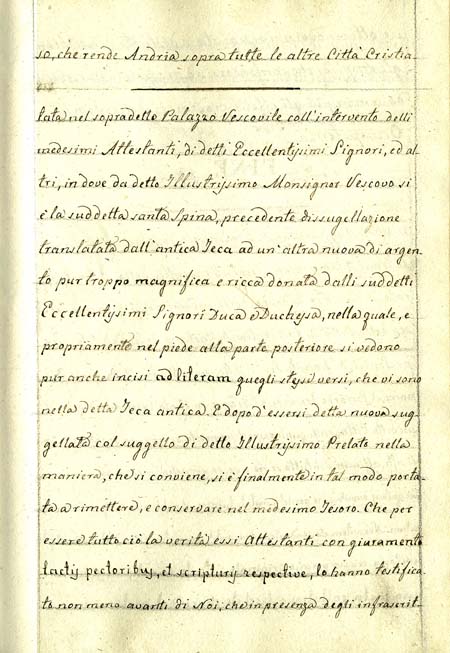 so, che rende Andria sopra tutte le altre Città Cristia-
tata nel sopradetto Palazzo Vescovile coll'intervento delli
medesimi Attestanti, di detti Eccellentissimi Signori, ed al-
tri, in dove da detto Illustrissimo Monsignor Vescovo si
è la suddetta santa Spina, precedente dissugellazione
translatata dall'antica Teca ad un'altra nuova di argen-
to pur troppo magnifica e ricca donata dalli suddetti
Eccellentissimi Signori Duca e Duchessa, nella quale, e
propriamente nel piede alla parte posteriore si vedono
pur anche incisi ad literam quegli stessi versi, che vi sono
nella detta Teca antica. E dopo d'essersi detta nuova sug-
gellata col suggello di detto Illustrissimo Prelato nella
maniera, che si conviene, si è finalmente in tal modo porta-
ta a rimettere, e conservare nel medesimo Tesoro. Che per
essere tutto ciò la verità essi Attestanti con giuramento
tactis pectoribus, et scripturis respective, lo hanno testifica-
to non meno avanti di Noi, che in presenza degli infrascrit-